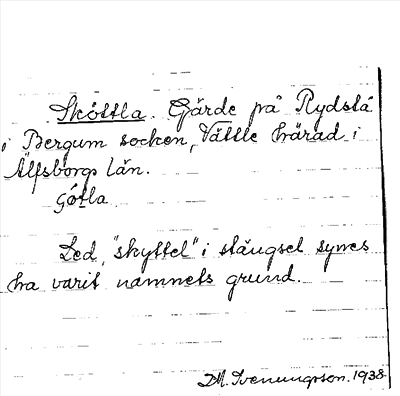 Sköttla. Gärde på Rydstå
i Bergum socken, Vättle härad i
Älfsborgs län.
Led, "skyttel" i stängsel synes
ha varit namnets grund.
D.M. Svenungsson. 1938